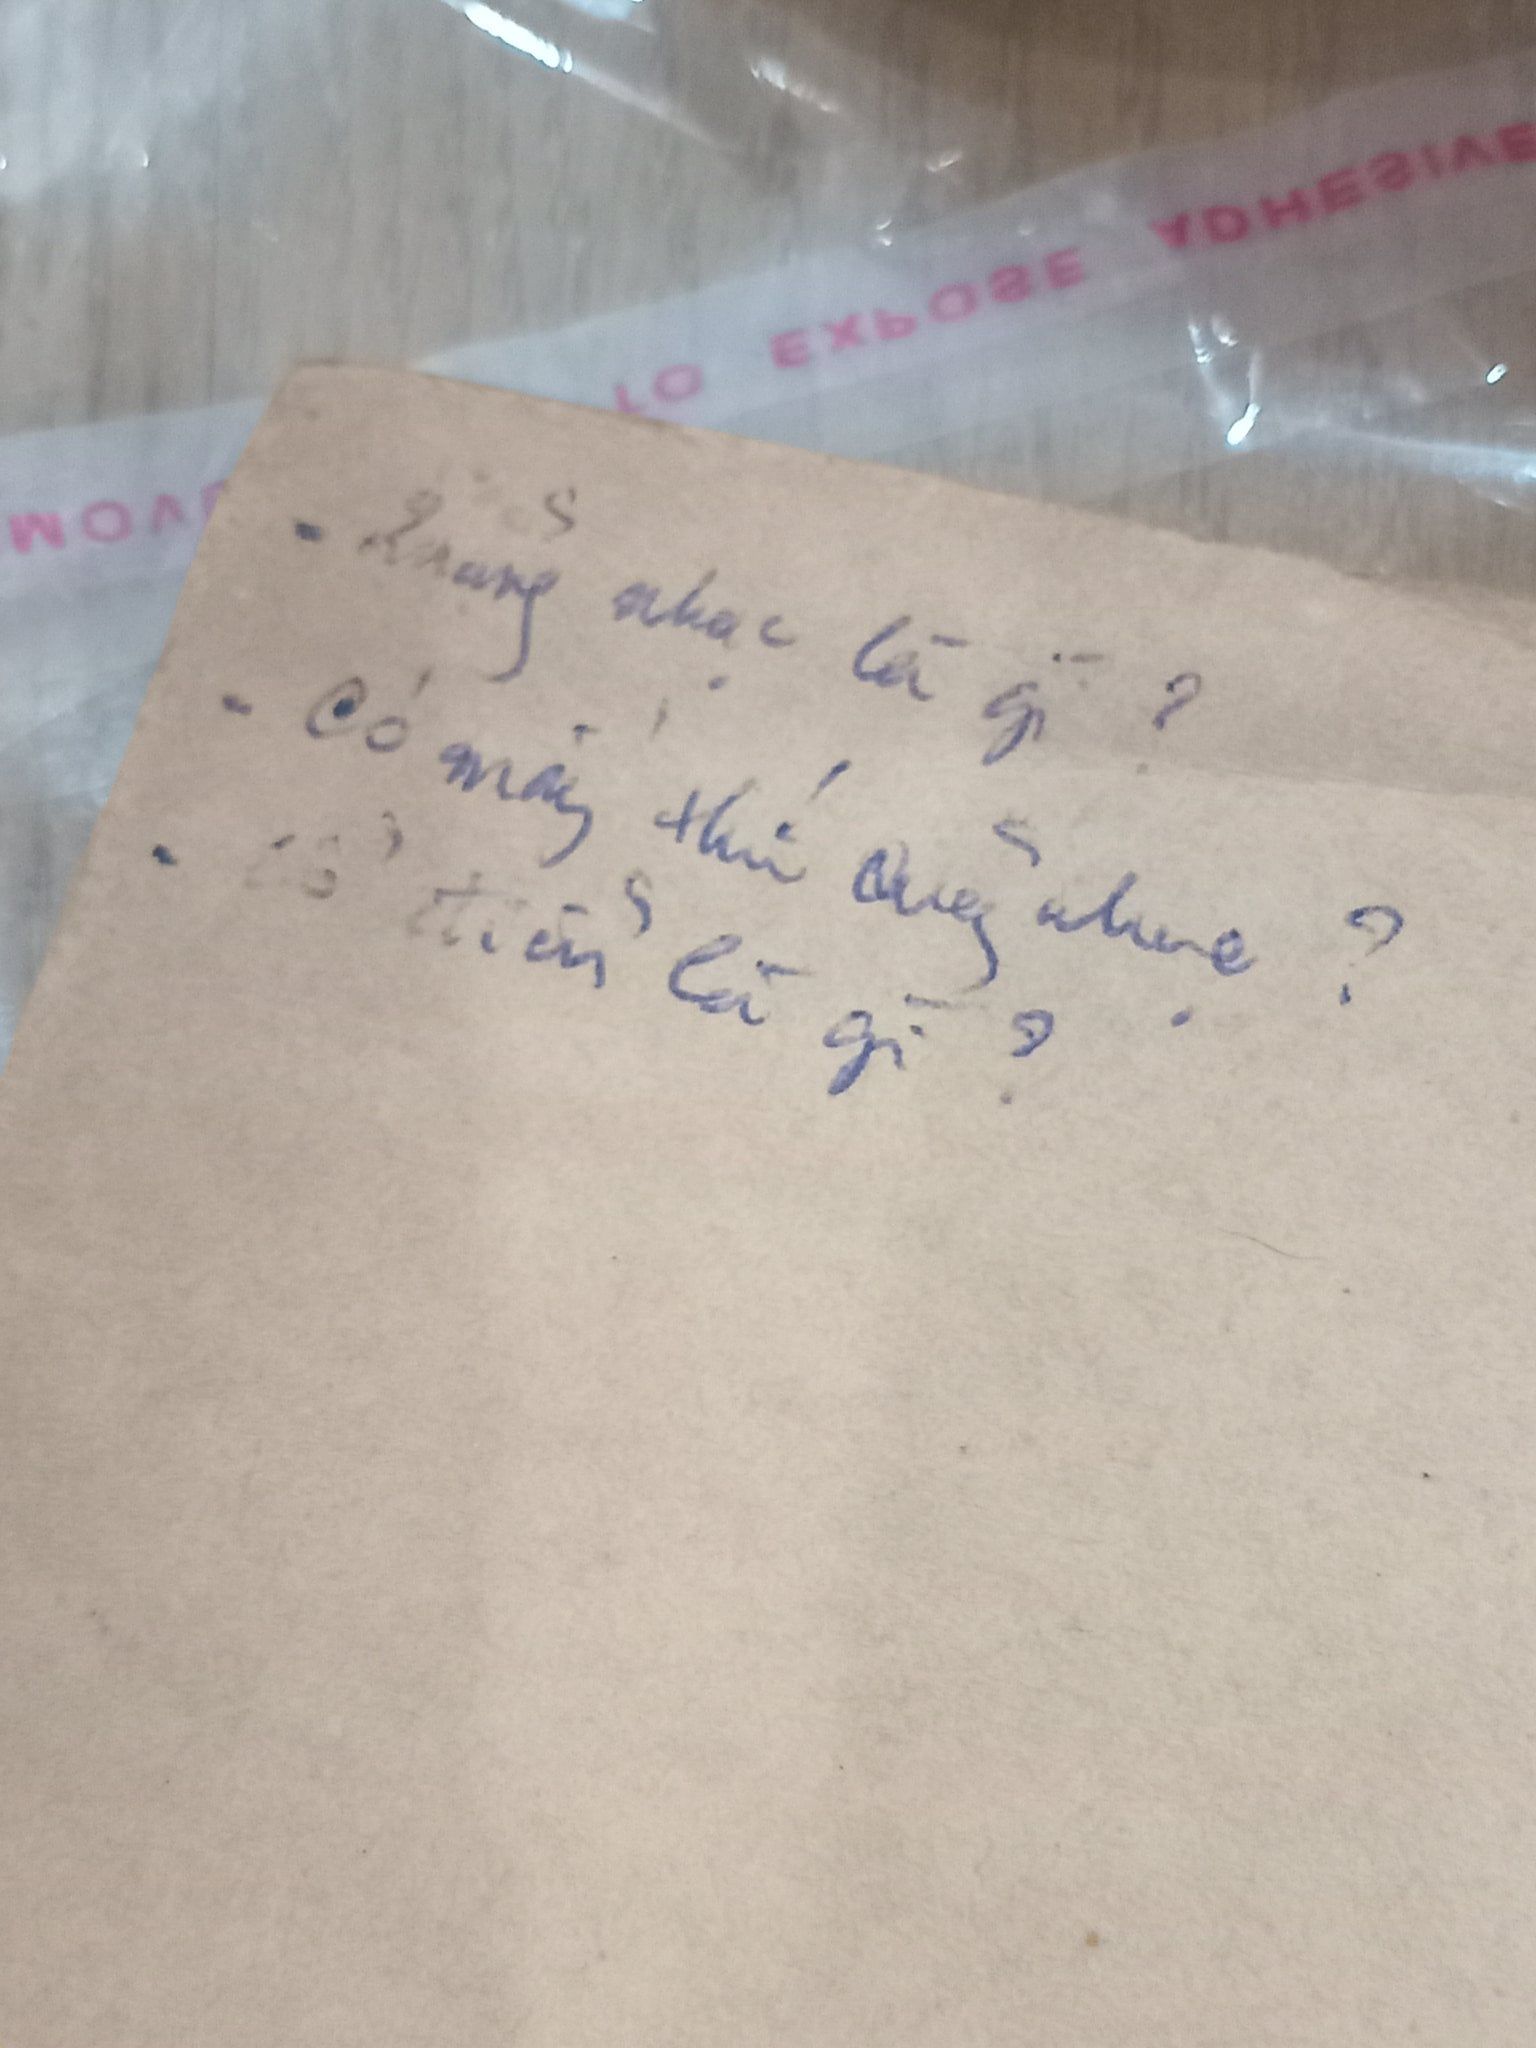 TO EXPOSE ADHESIVE
- nhạc là gì ?
- Có mấy thứ nhạc ?
- Cổ điển là gì ?